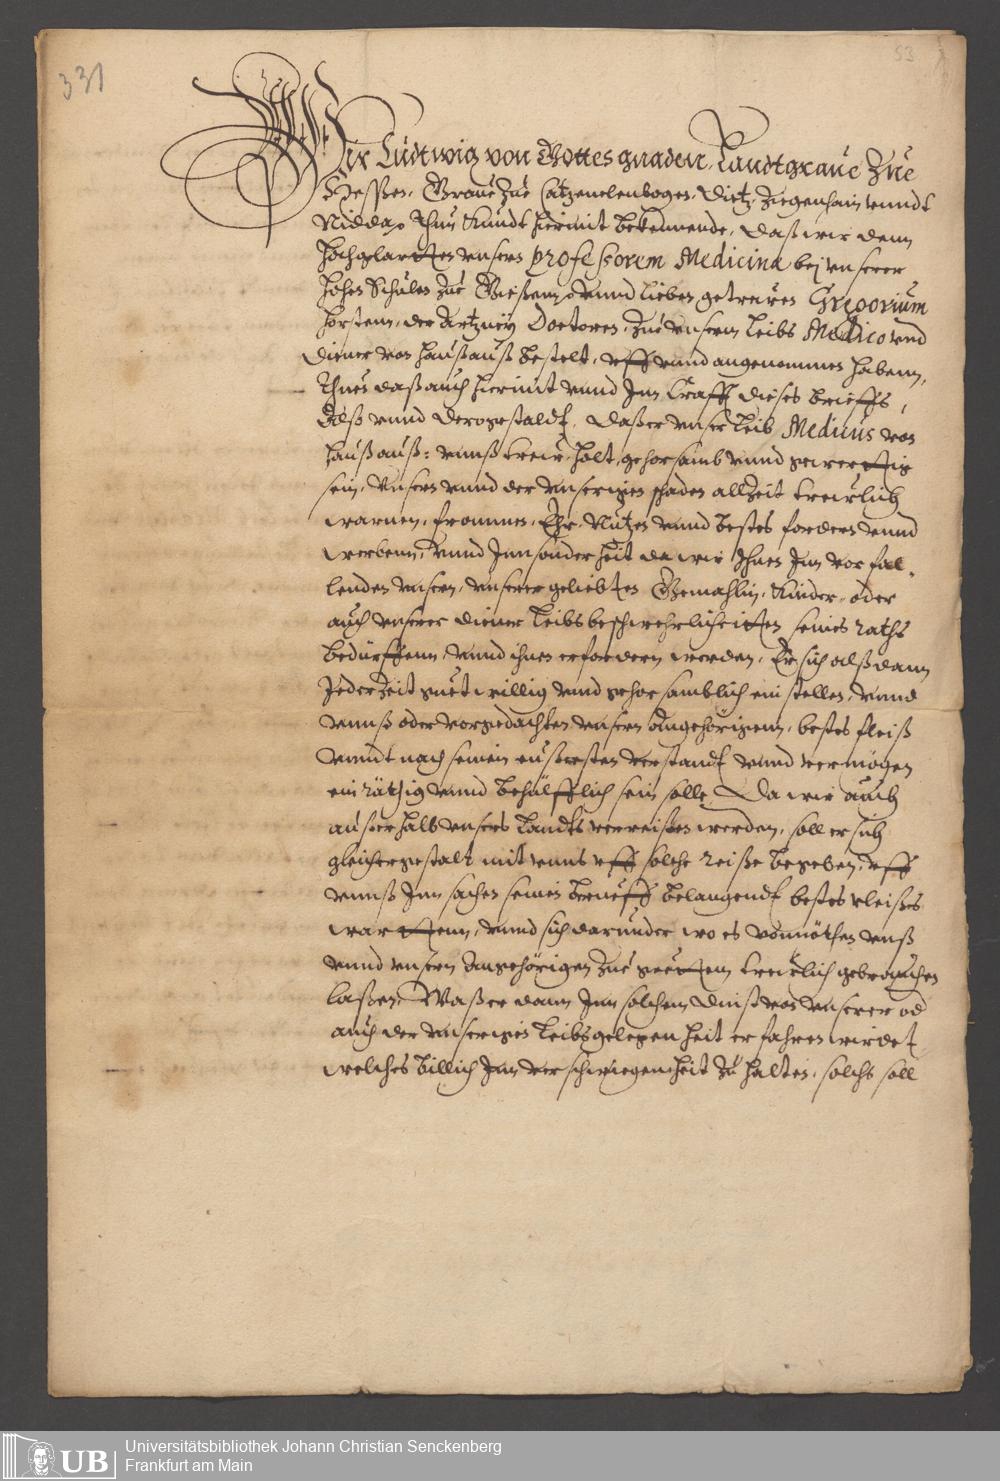 331
53
Wir Ludwig von Gottes gnaden, Landtgraue Zue
Hessen, Graue Zue Catzenelenbogen, Dietz, Ziegenhain vnndt
Nidda, Thun Kundt hiermit bekennende, Daß wir denn
hochgelarten vnsern professorem Medicinæ bej vnserer
hohen Schulen Zue Gießenn, vnnd lieben getreuen Gregorium
horstenn, der Artzney Doctoren, Zue vnserm leibs Medico vnd
diener von hauß auß bestelt, vff vnnd angenommen habenn,
Thuen daß auch hiermit vnnd Inn Crafft dieses brieffs,
Alß vnnd dergestaldt, daß er vnser leib Medicus von
hauß auß: vnnß treu, holt, gehorsamb vnnd gewerttig
sein, Vnsern vnnd der vnserigen schaden allzeit treulich
warnen, frommen, Ehr, Nutzen vnnd bestes fordern vnnd
werbenn, Vnnd Innsonderheit da wir Ihnen Inn vorfal-
lenden vnsern, vnserer geliebten Gemahlin, Kinder, oder
auch vnserer diener leibsbeschwehrlicheitten seines raths
bedürffenn, vnnd ihnen erfordern werden, Er sich alß dann
Jederzeit guetwillig vnnd gehorsamblich einstellen, vnnd
vnnß oder vorgedachten vnsern Angehörigenn, bestes fleiß
vnndt nach seinem eußersten verstandt vnnd vermögen
einräthig vnnd behülfflich sein solle, Da wir auch
ausserhalb vnsers Landts verreißen werden, soll er sich
gleichergestalt mit vnns vff solche reiße begeben, vff
vnnß Inn sachen seinen beruff belangendt bestes vleißes
warttenn, vnnd sich darunder wo es vonnöthen vnß
vnnd vnsern Angehörigen Zue guettem treulich gebrauchen
laßen, Waß er dann Inn solchem dinst von vnserer od
auch der vnserigen leibsgelegenheit erfahren wirdet
welches billich Inn verschwiegenheit zu halten, solchs soll
UB
Universitätsbibliothek Johann Christian Senckenberg
Frankfurt am Main